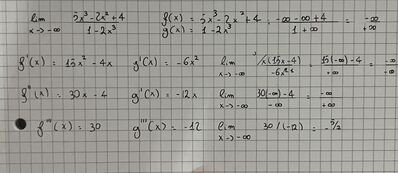 lim x→-∞ 5x³-2x²+4 / 1-2x³   f(x) = 5x³-2x²+4 ; -∞-∞+4 / 1+∞ = -∞ / +∞
g(x) = 1-2x³
f'(x) = 15x²-4x   g'(x) = -6x²   lim x→-∞ x(15x-4) / -6x² = 15(-∞)-4 / +∞ = -∞ / +∞
f''(x) = 30x-4   g'(x) = -12x   lim x→-∞ 30(-∞)-4 / -∞ = -∞ / +∞
f'''(x) = 30   g'''(x) = -12   lim x→-∞ 30/(-12) = -5/2